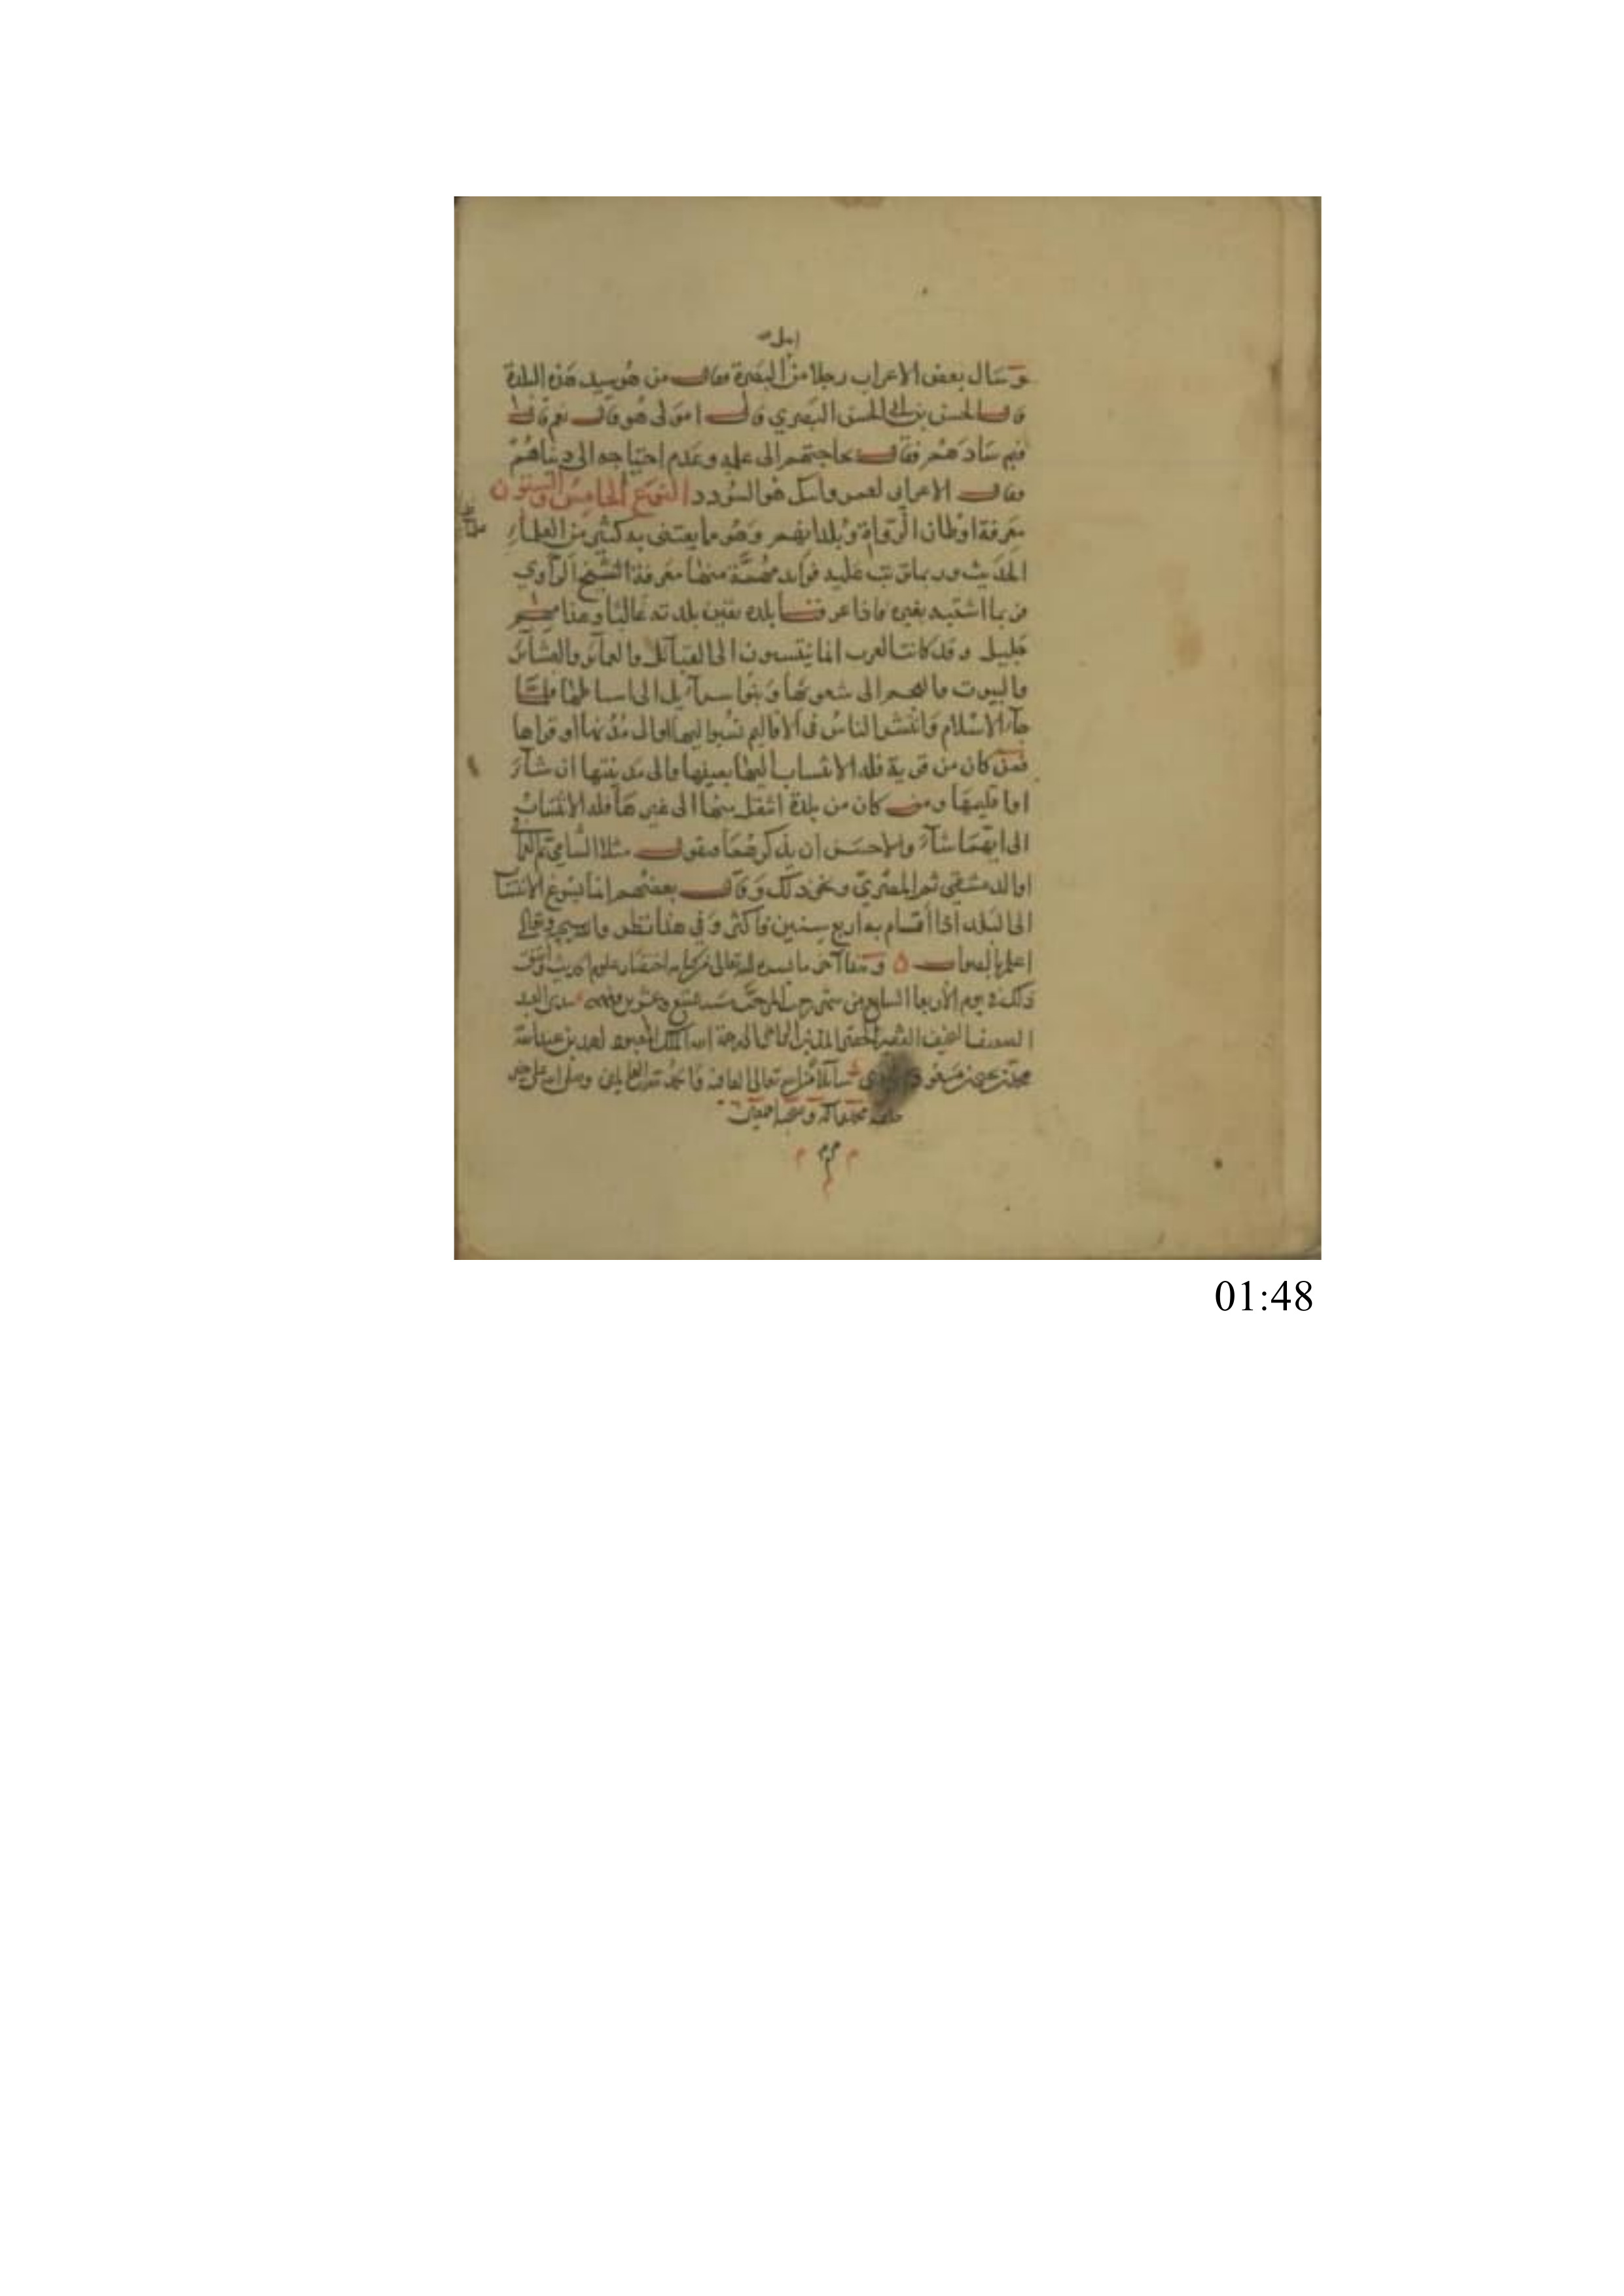 اهل
وسال بعض الاعراب رجلا من البصرة وقال من هو سيد هذه البلدة
قال الحسن بن ابي الحسن البصري قال امولى هو قال نعم قال
فبم سادهم فقال بحاجتهم الى علمه وعدم احتياجه الى دنياهم
وقال الاعرابي لعمر والله هو السودد النوع الخامس والستون
معرفة اوطان الرواة وبلدانهم وهو ما يعتني به كثير من العلماء
الحديث وربما ترتب عليه فوايد مهمة منها معرفة الشيخ الراوي
فربما اشتبه بغيره فاذا عرفنا بلده تعين بلدته غالبا وهذا مهم
جليل وقد كانت العرب انما ينتسبون الى القبائل والعمائر والعشائر
والبيوت والعجم الى شعوبها وبنوا اسرآئيل الى اسباطها فلما
جآء الاسلام وانتشر الناس في الاقاليم نسبوا اليها او الى مدنها او قراها
فمن كان من قرية فله الانتساب اليها بعينها والى مدينتها ان شآء
او اقليمها ومن كان من بلدة انتقل منها الى غيرها فله الانتساب
الى ايهما شآء والاحسن ان يذكرهما فيقول مثلا الشامي ثم العراقي
او الدمشقي ثم المصري ونحو ذلك وقال بعضهم انما يسوغ الانتساب
الى البلد اذا أقام به اربع سنين فاكثر وفي هذا نظر والله سبحانه وتعالى
اعلم بالصواب ه وهذا آخر ما يسره الله تعالى من كتاب اختصار علوم الحديث واتفق
ذلك في يوم الأربعا السابع من شهر رجب المرجب سنة عشرين
العبد
الضعيف النحيف الفقير الحقير المذنب الراجي الى رحمة الله الملك المعبود احمد بن عبدالله
محمد بن يحيى بن مسعود سآئلا من الله تعالى العافية والحمد لله رب العالمين وصلى الله على خير
خلقه محمد وآله وصحبه اجمعين
م م م م
01:48